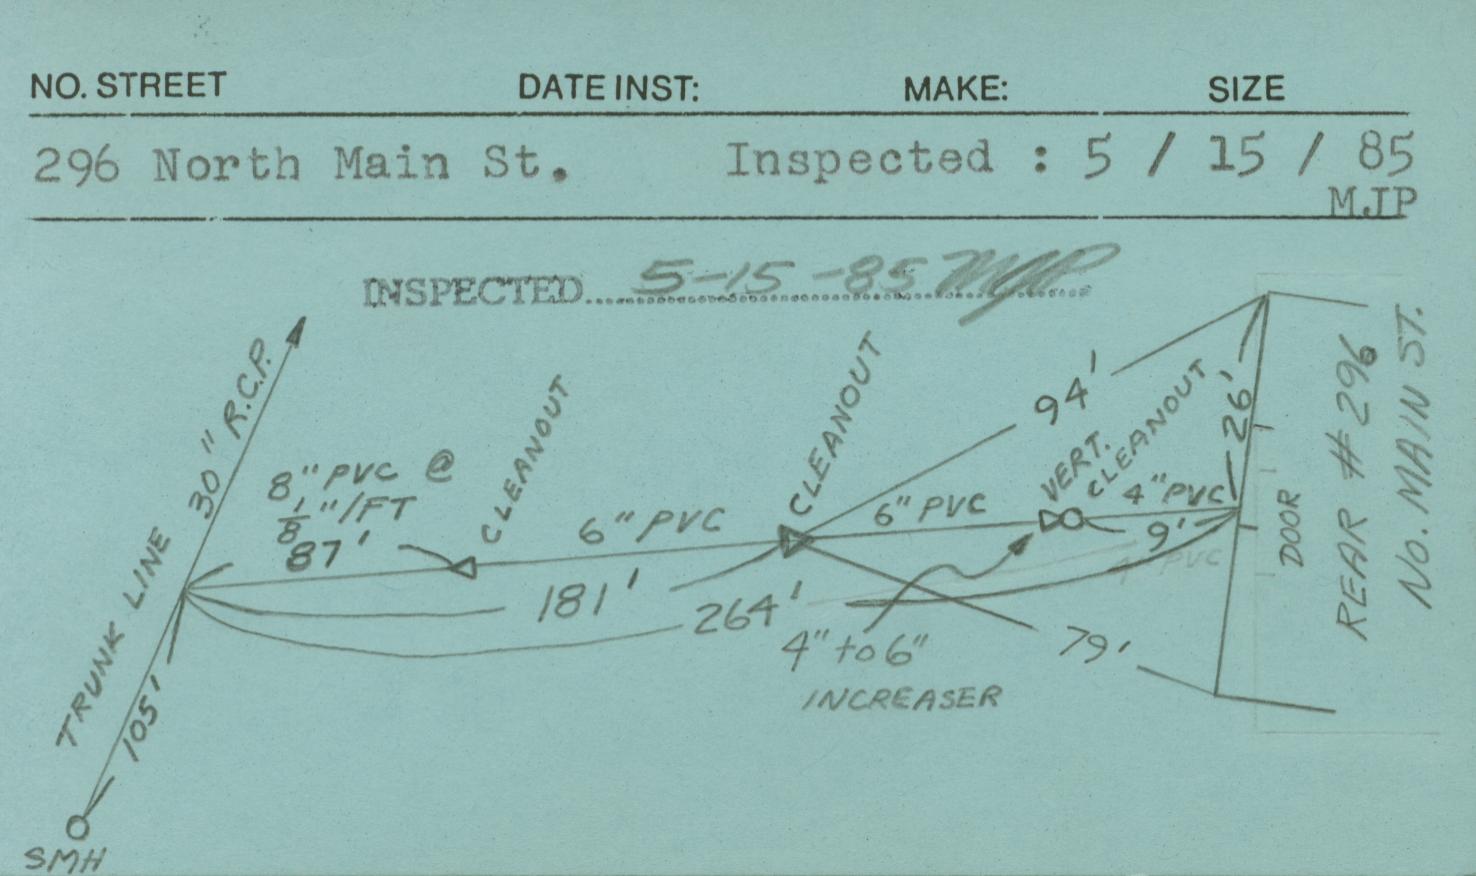 NO. STREET DATE INST: MAKE: SIZE
296 North Main St. Inspected : 5 / 15 / 85
MJP
INSPECTED 5-15-85 MJP
TRUNK LINE 30" R.C.P.
105'
SMH
8" PVC @
1/8"/FT
87'
CLEANOUT
6" PVC
181'
264'
CLEANOUT
94'
6" PVC
VERT.
CLEANOUT
4" PVC
9'
4" PVC
26'
79'
4" to 6"
INCREASER
DOOR
REAR # 296
No. MAIN ST.